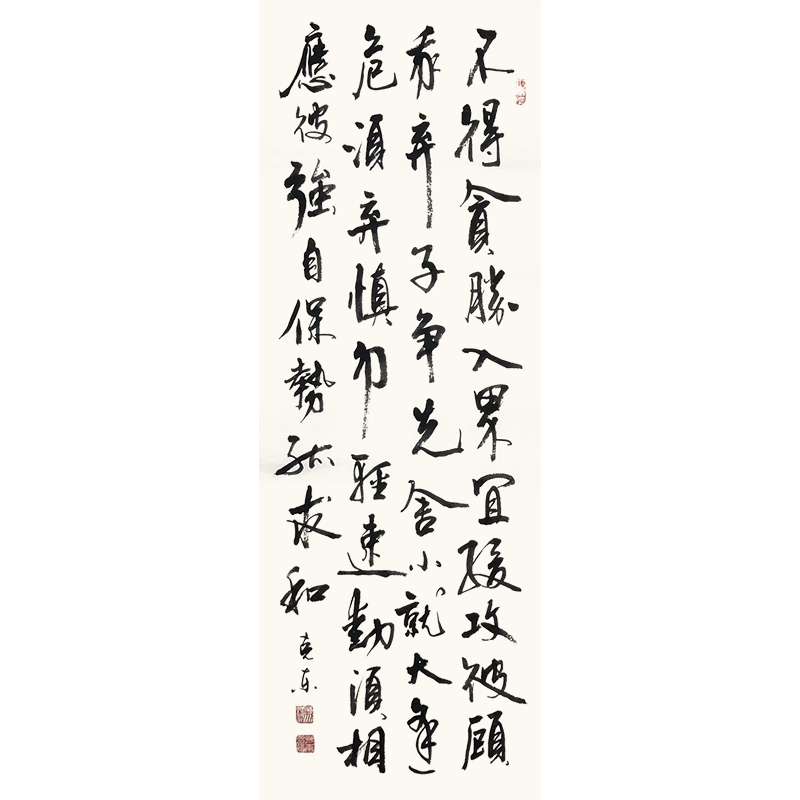 不得貪勝入界宜緩攻彼顧
我弃子争先舍小就大逢
危須弃慎勿輕速動須相
應彼強自保勢孤求和
克东